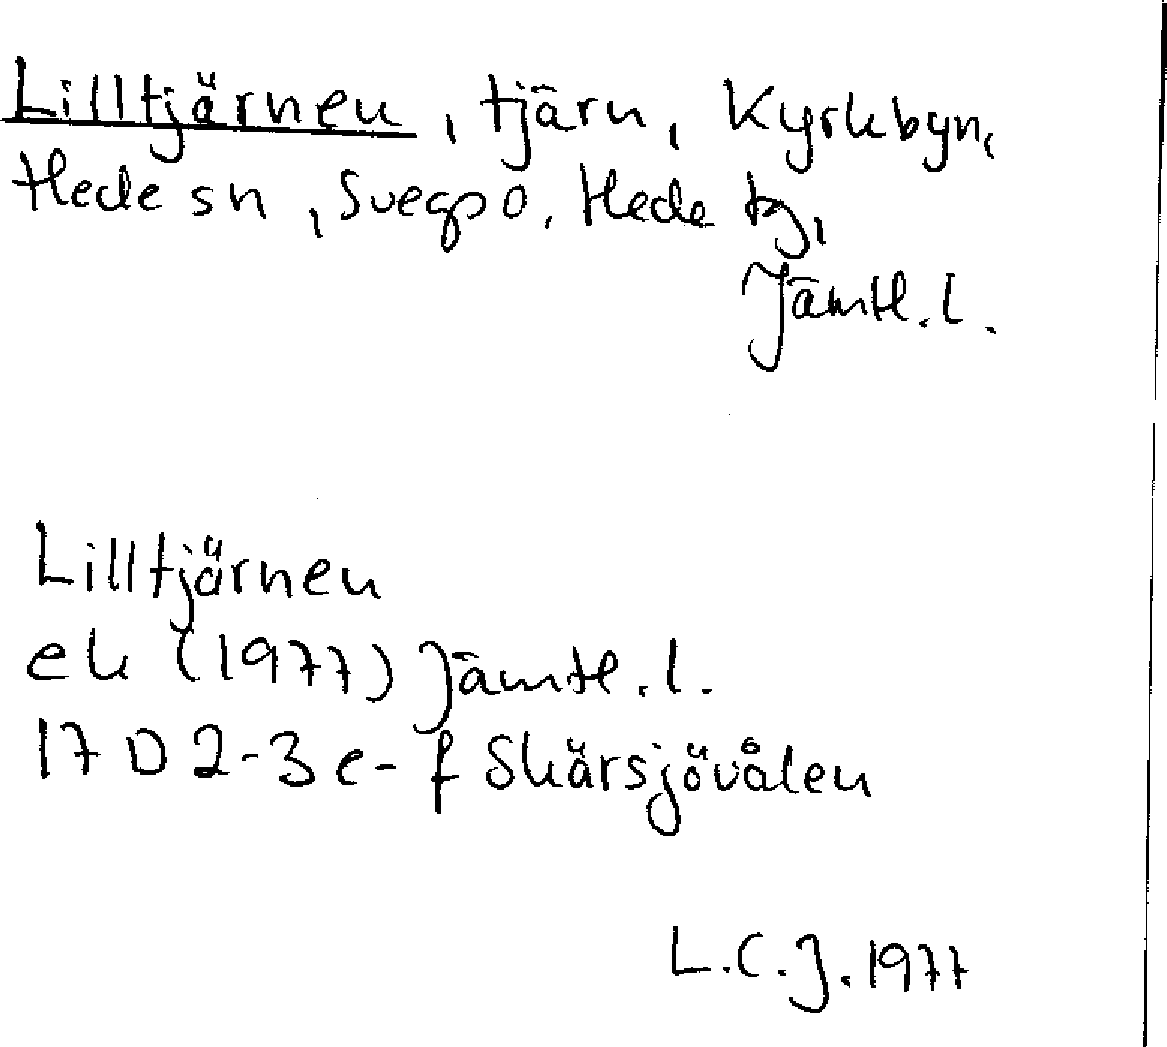 Lilltjärnen, tjärn, Kyrkbyn,
Hede sn, Svegs po, Hede tg,
Jämtl. l.
Lilltjärnen
ek (1977) Jämtl. l.
17 D 2-3 e-f Skärsjövålen
L.C.J. 1977